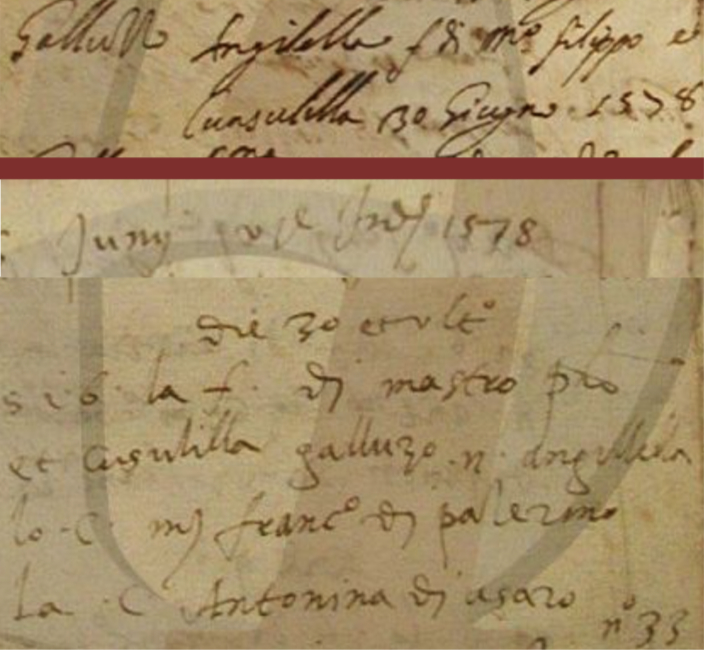 Galluzzo Angilella f. di m.º filippo e
Cusulilla 30 Giugno 1578
Juny vje Ind. 1578
die 30 et ult.º
s i b la f. di mastro ph.º
et Cusulilla galluzo. n. angilella
lo. C. m.) franc.º di palermo
la. C. Antonina di asaro nº 33